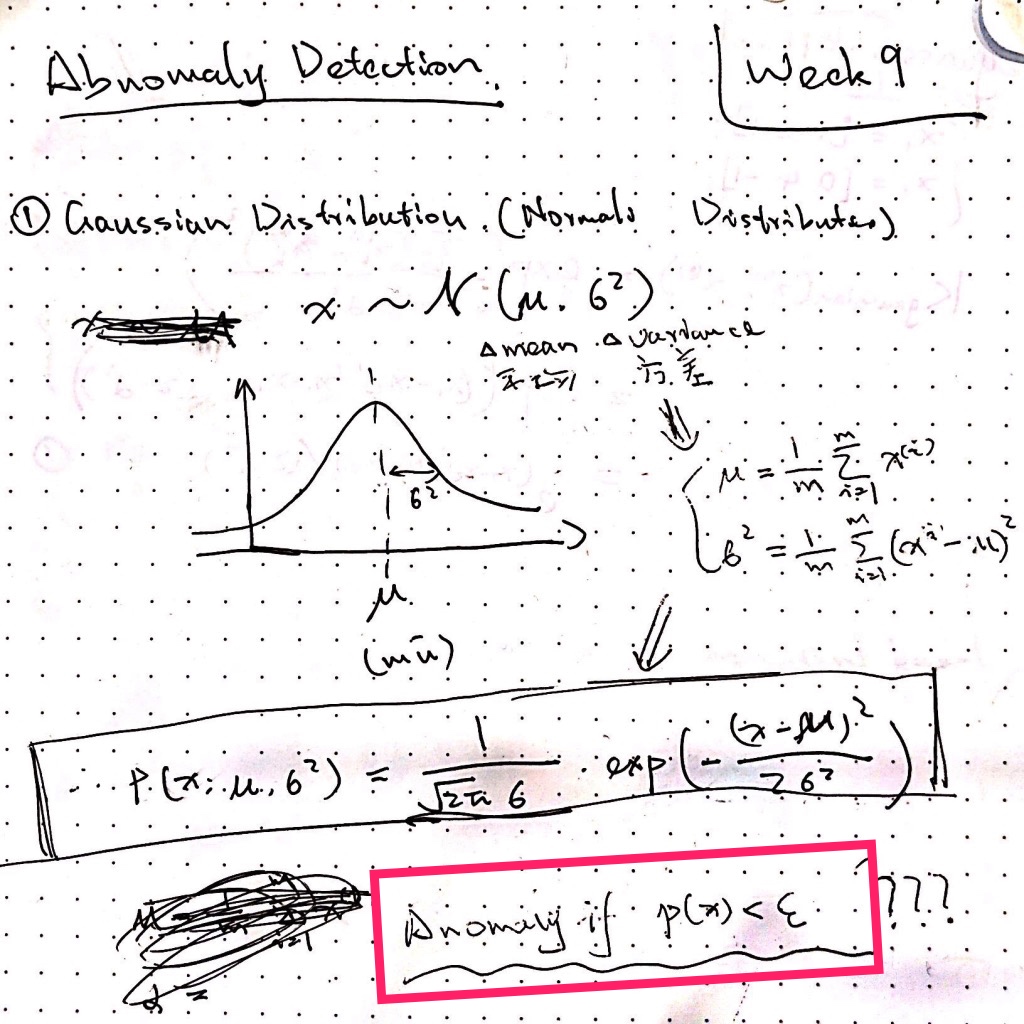 Abnomaly Detection.
Week 9
① Gaussian Distribution. (Normal Distribution)
x ~ N (μ, σ²)
△ mean △ variance
方差
σ²
μ
(mū)
μ = 1/m Σ_{i=1}^{m} x^{(i)}
σ² = 1/m Σ_{i=1}^{m} (x^{i} - μ)²
P(x; μ, σ²) = 1/(√2π σ) · exp(- (x-μ)²/2σ²)
Anomaly if p(x) < ε
???